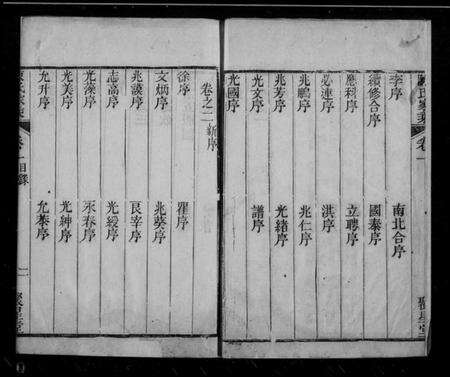 卷一
李序
南北合序
續修合序
國泰序
應科序
立聘序
必連序
洪序
兆鵬序
兆仁序
兆芳序
光緒序
光文序
譜序
光國序
卷之二 新序
徐序
瞿序
文炳序
兆葵序
兆謨序
良宰序
志高序
光綬序
光藻序
永春序
光美序
光紳序
允升序
允蓁序
卷一 目錄